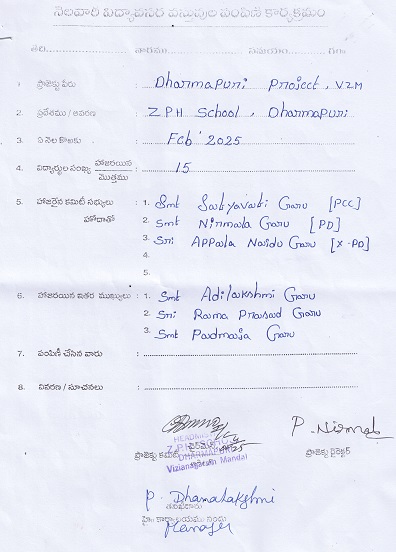 నెలవారీ విద్యావసర వస్తువుల పంపిణీ కార్యక్రమం
తేది...................... వారము...................... సమయం...................... గంట
1. ప్రాజెక్టు పేరు : Dharmapuri Project, VZM
2. ప్రదేశము / ఆవరణ : Z PH School, Dharmapuri
3. ఏ నెల కొఱకు : Feb' 2025
4. విద్యార్థుల సంఖ్య హాజరయిన / మొత్తము : 15
5. హాజరైన కమిటీ సభ్యులు హోదాతో : 1. Smt Satyavati Garu [PCC]
2. Smt Nirmala Garu [PD]
3. Sri Appala Naidu Garu [X-PD]
4.
5.
6. హాజరయిన ఇతర ముఖ్యులు : 1. Smt Adilakshmi Garu
2. Sri Rama Prasad Garu
3. Smt Padmaja Garu
7. పంపిణీ చేసిన వారు :
8. వివరణ / సూచనలు :
P. Nirmala
ప్రాజెక్టు కమిటీ చైర్మన్
ప్రాజెక్టు డైరెక్టర్
Z.P.H. SCHOOL
DHARMAPURI
Vizianagaram Mandal
P. Dhanalakshmi
తనిఖీదారు
హెడ్ కార్యాలయము నుండి
Manager